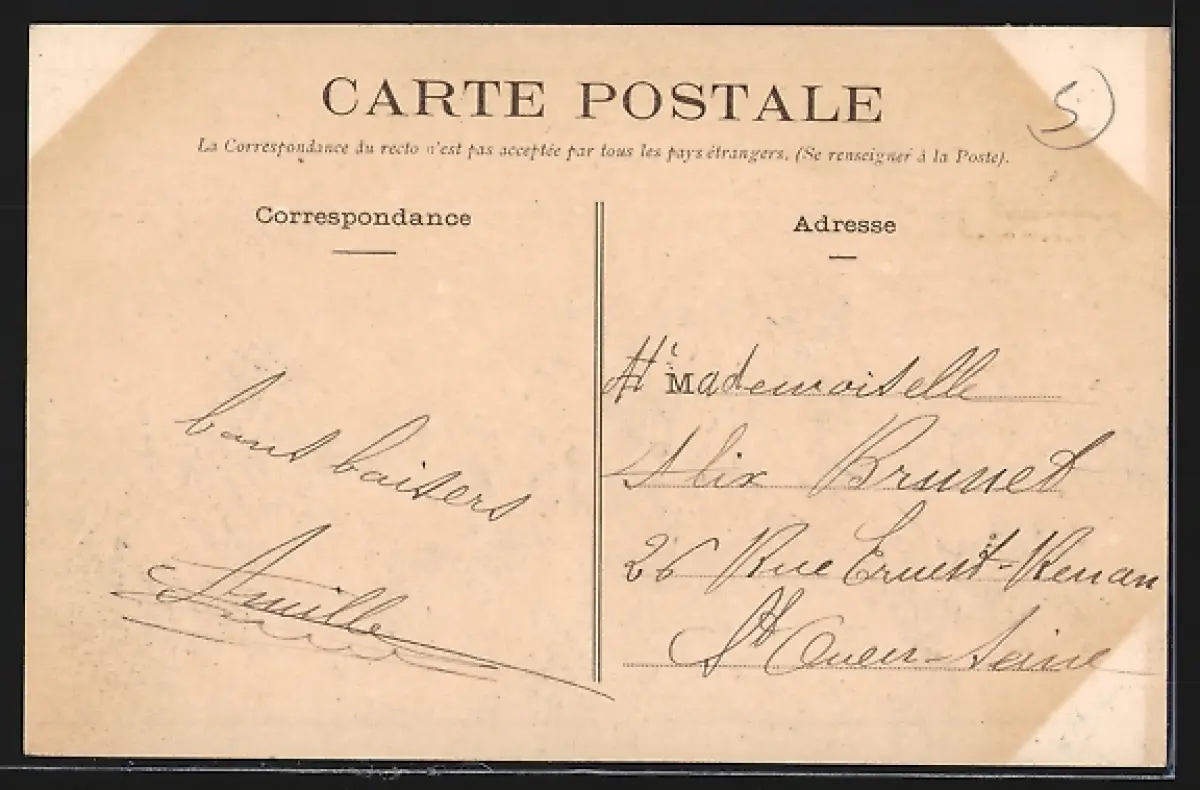 CARTE POSTALE
La Correspondance du recto n'est pas acceptée par tous les pays étrangers. (Se renseigner à la Poste).
5
Correspondance
Adresse
bons baisers
Mademoiselle
Alix Brunet
26 Rue Ernest-Renan
St Ouen-Seine